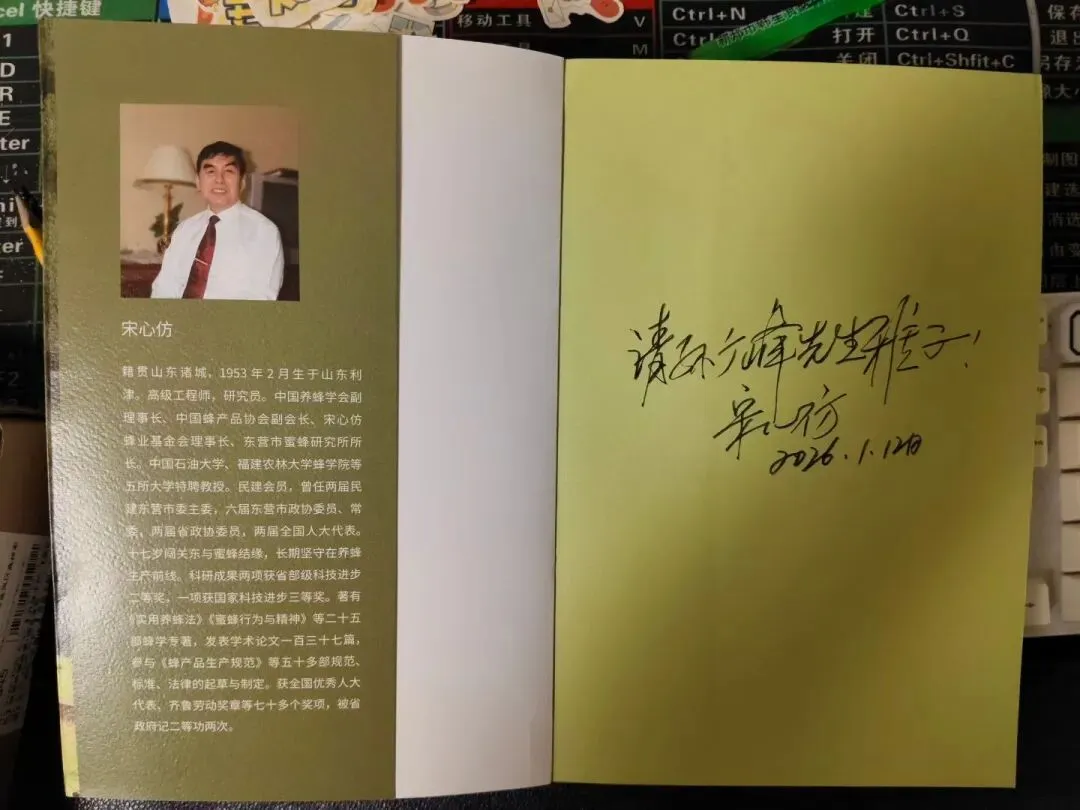 cel 快捷键
移动工具
V
M
Ctrl+N
打开
关闭
Ctrl+S
Ctrl+Q
Ctrl+Shfit+C
保存
退出
另存
宋心仿
籍贯山东诸城，1953 年 2 月生于山东利
津。高级工程师，研究员。中国养蜂学会副
理事长、中国蜂产品协会副会长、宋心仿
蜂业基金会理事长、东营市蜜蜂研究所所
长。中国石油大学、福建农林大学蜂学院等
五所大学特聘教授。民建会员，曾任两届民
建东营市委主委，六届东营市政协委员、常
委，两届省政协委员，两届全国人大代表。
十七岁闯关东与蜜蜂结缘，长期坚守在养蜂
生产前线。科研成果两项获省部级科技进步
二等奖，一项获国家科技进步三等奖。著有
《实用养蜂法》《蜜蜂行为与精神》等二十五
部蜂学专著，发表学术论文一百三十七篇，
参与《蜂产品生产规范》等五十多部规范、
标准、法律的起草与制定。获全国优秀人大
代表、齐鲁劳动奖章等七十多个奖项，被省
政府记二等功两次。
请孙六峰先生雅正！
宋心仿
2026.1.12日